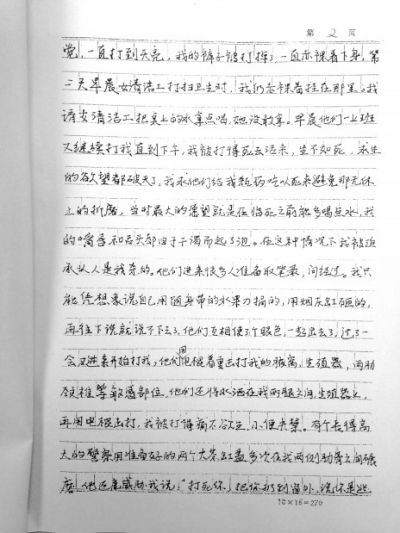 第 2 页
觉,一直打到天亮,我的裤子被打掉了,一直赤裸着下身,第
二天早晨女清洁工打扫卫生时,我仍赤裸着挂在那里。我
请女清洁工把桌上的水拿点喝,她没敢拿。早晨他们一上班
又继续打我直到下午,我被打得死去活来,生不如死,求生
的欲望都破灭了,我求他们给我颗药吃以死来避免那无休
止的折磨,当时最大的愿望就是在临死之前能多喝点水,我
的嘴唇和舌头都由于干渴而起了泡。在这种情况下我被迫
承认人是我杀的。他们进来很多人准备取笔录,问经过。我只
能凭想象说自己用随身带的水果刀捅的,用烟灰缸砸的,
再往下说就说不下去了,他们互相使了个眼色,一起出去了,过了一
会又进来开始打我,他们用电棍着重击打我的 生殖器,两肋
颈椎等敏感部位,他们还将水洒在我两腿之间,生殖器上,
再用电棍击打,我被打得痛不欲生,小便失禁。有个长得高
大的警察用准备好的两个大茶缸盖多次在我两侧肋骨之间碾
磨,他还 威胁我说:"打死你,把你扔到窗外,说你是逃
18×15=270